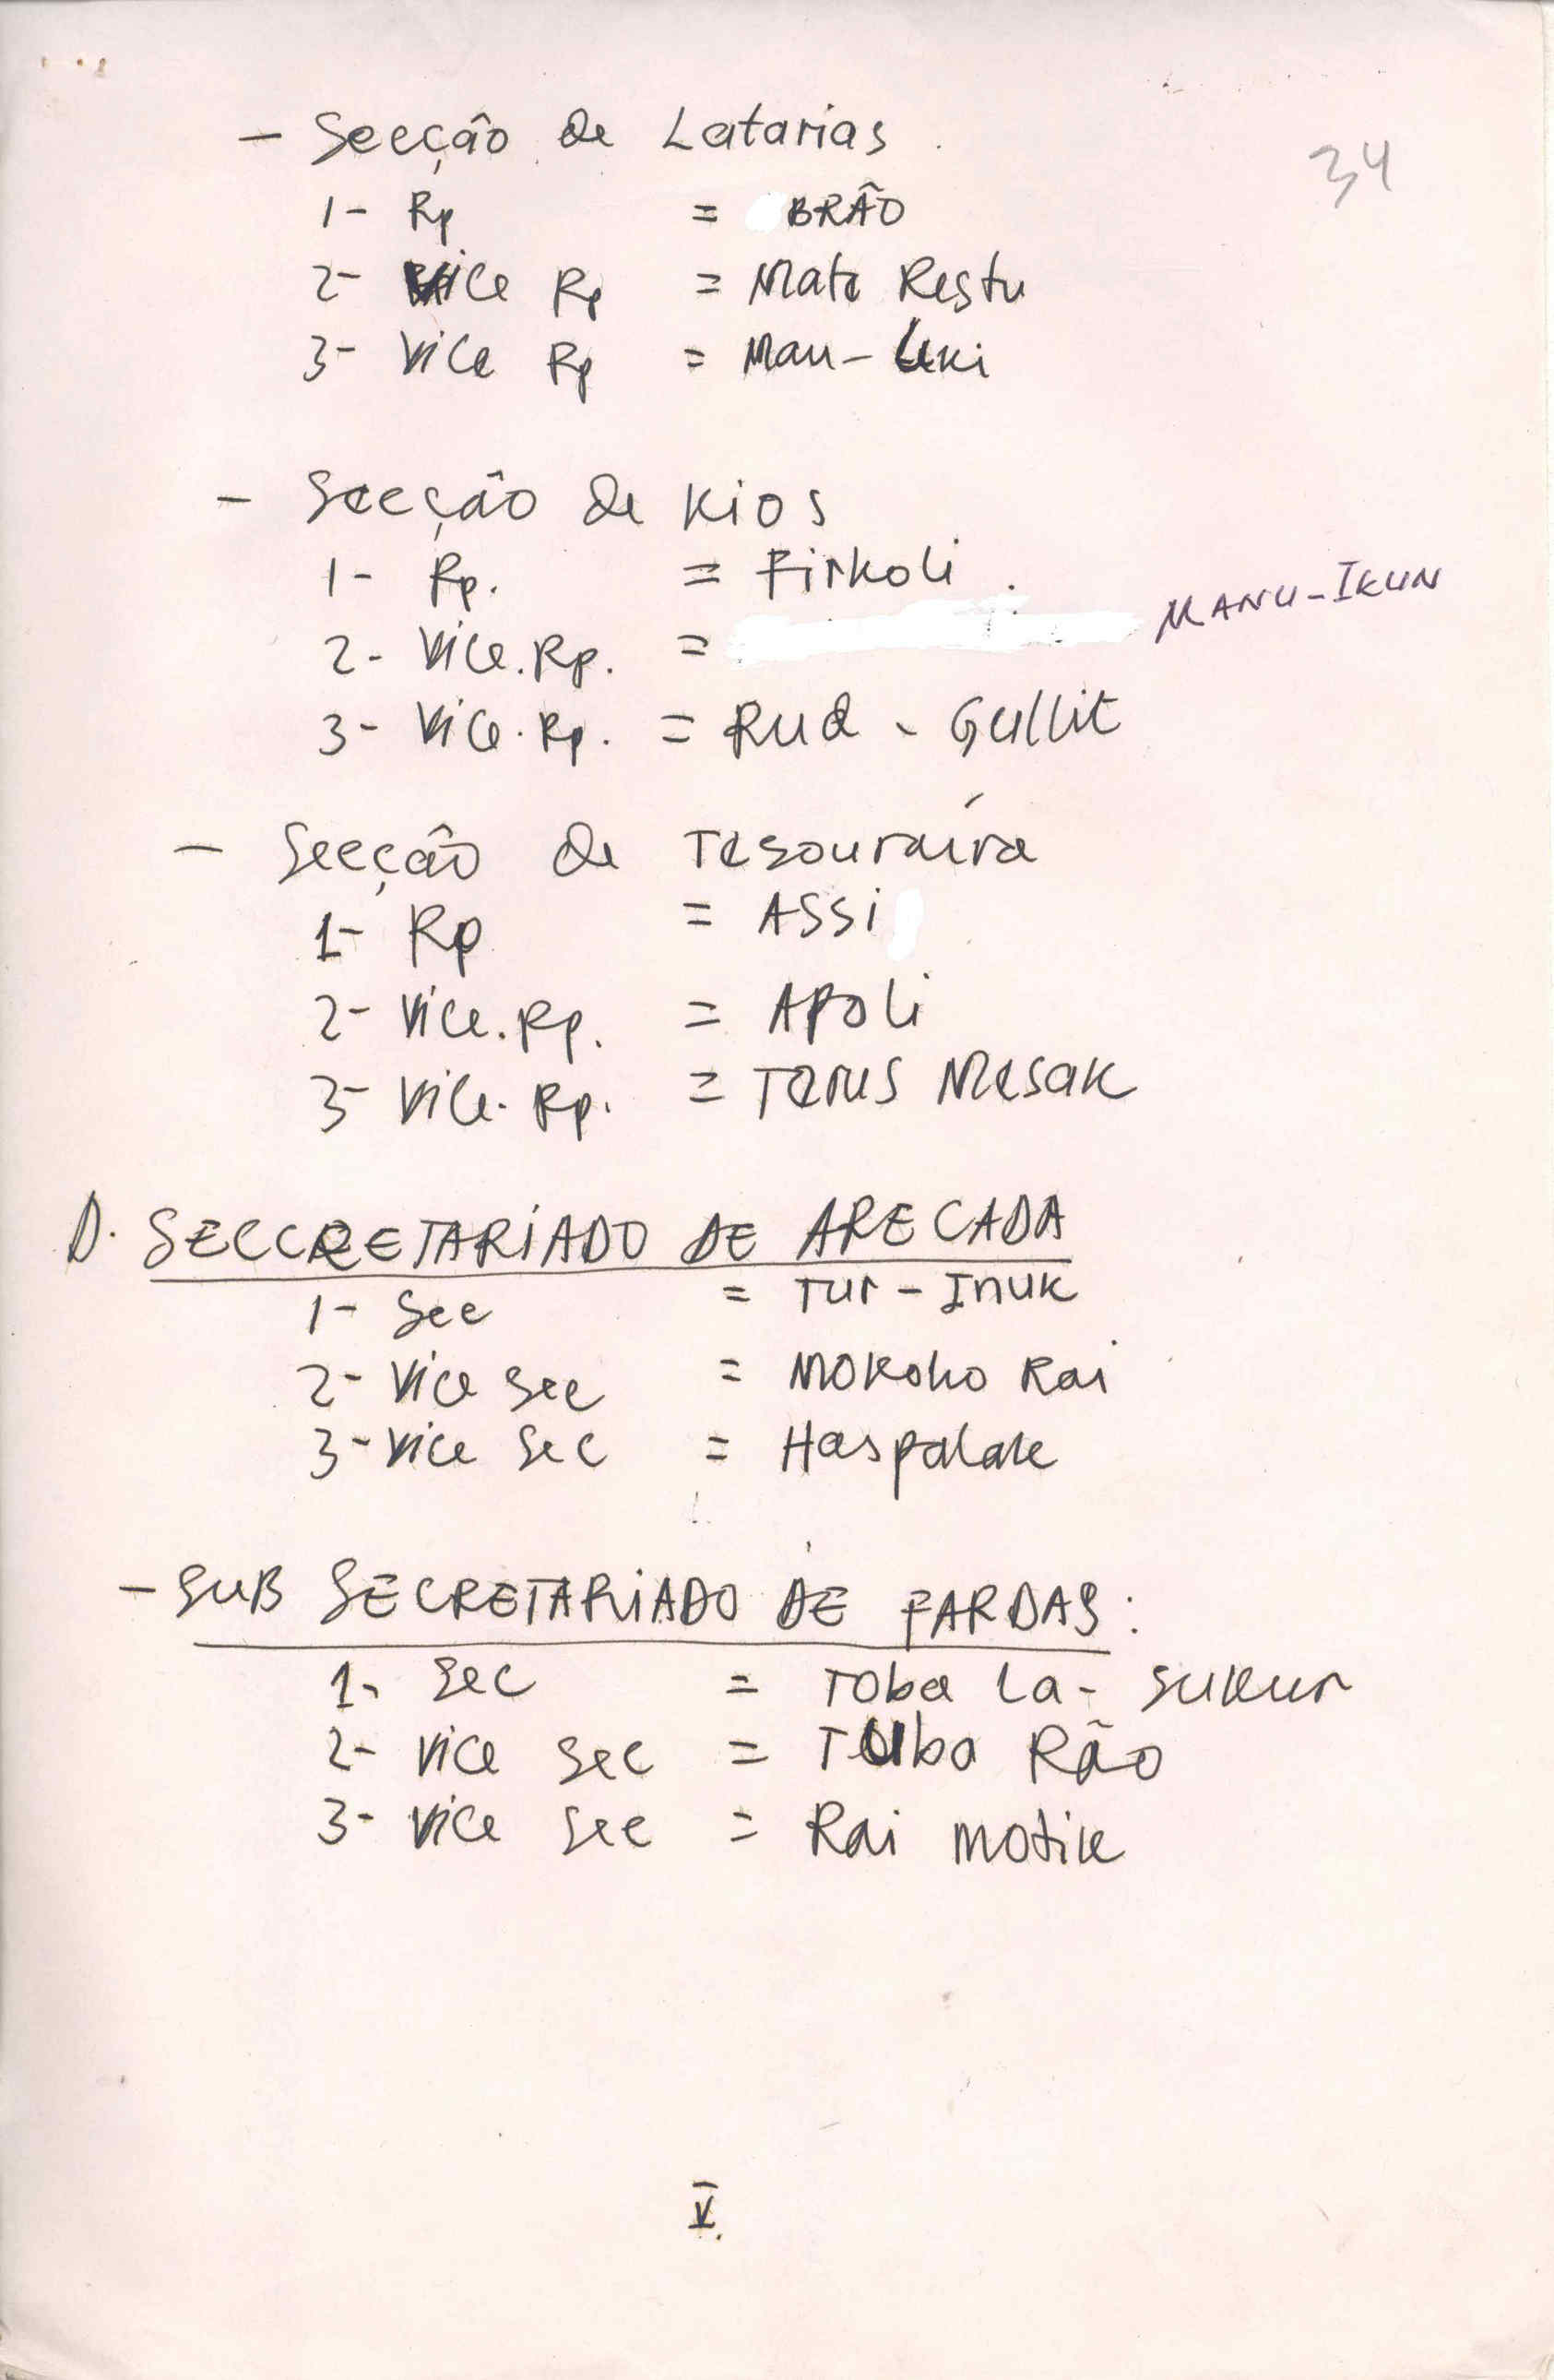 - Secção de Latarias
34
1- Rp = BRÃO
2- Vice Rp = Mate Restu
3- Vice Rp = Mau-Uki
- Secção de Kios
1- Rp. = Firkoli.
2- Vice.Rp. = MANU-IKUN
3- Vice.Rp. = Rud - Gullit
- Secção de Tesouraira
1- Rp = ASSi
2- Vice.Rp. = APOLi
3- Vice.Rp. = Terus Mesak
D. SECCRETARIADO DE ARECADA
1- Sec = Tur-Inuk
2- Vice Sec = MOKoho Rai
3- Vice Sec = Haspalak
- SUB SECRETARIADO DE FARDAS:
1- Sec = Toba La- Sukur
2- Vice Sec = Tuba Rão
3- Vice Sec = Rai Motik
V.